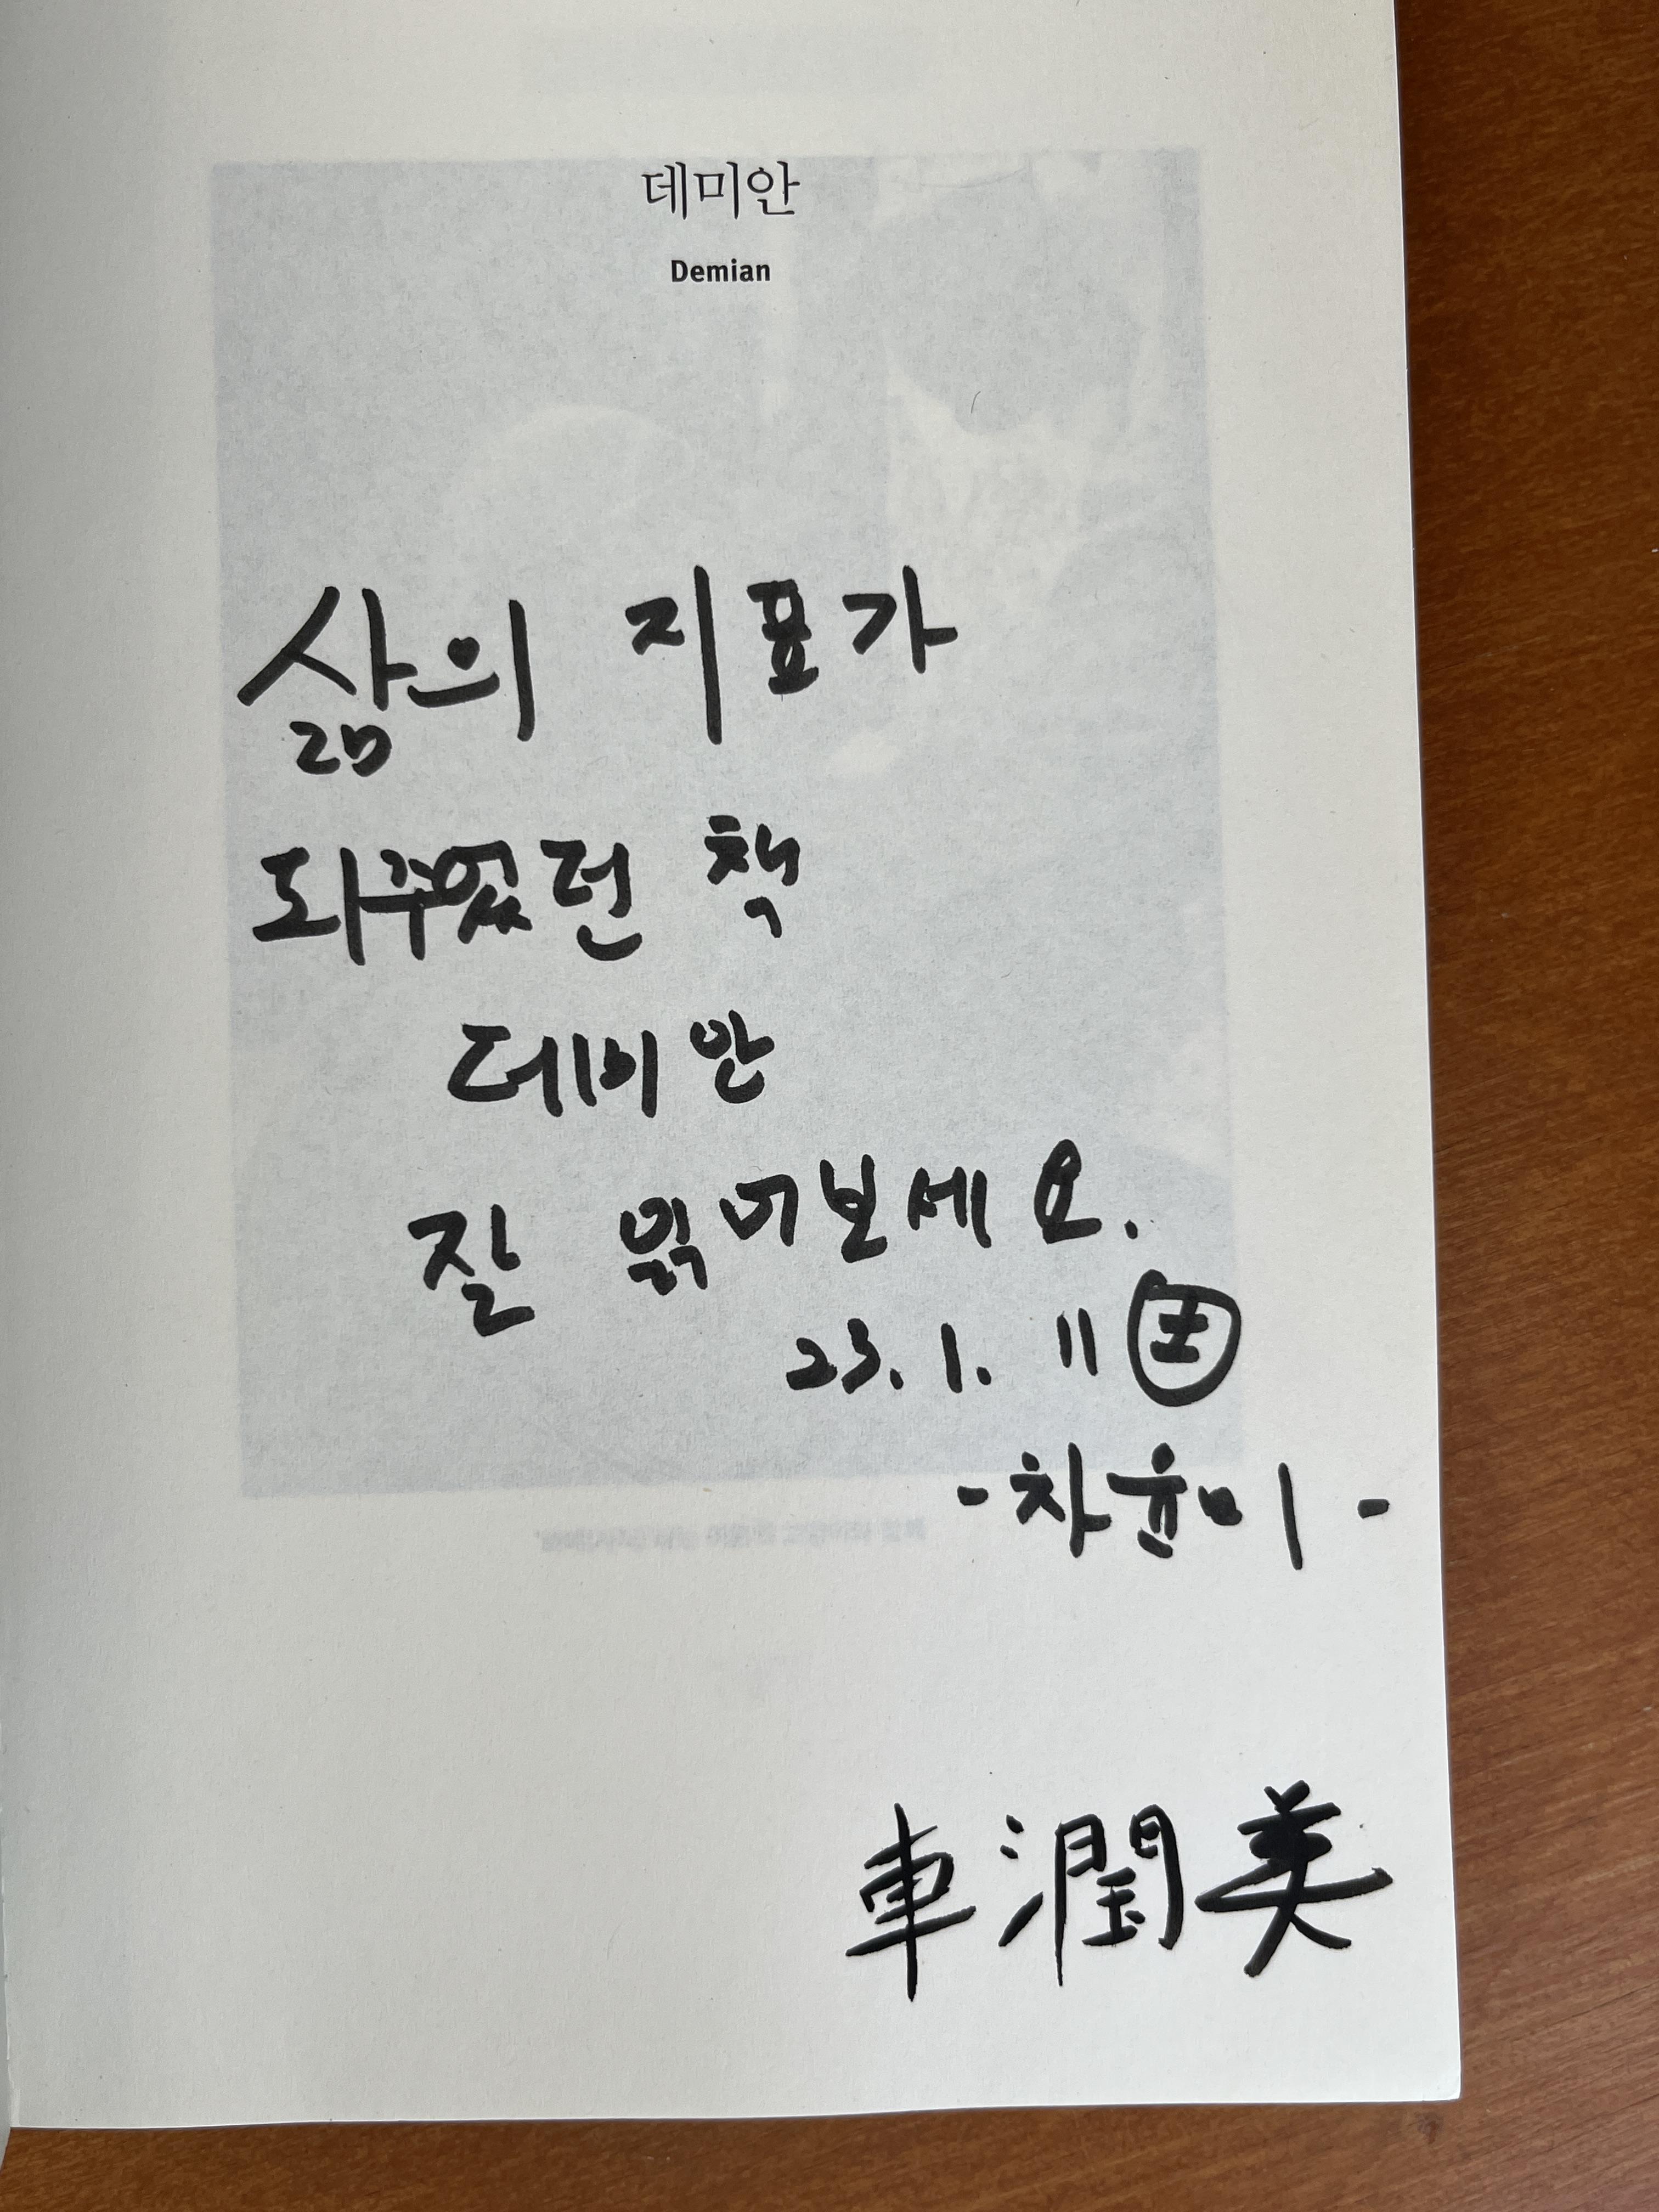 데미안
Demian
삶의 지표가
되주었던 책
데미안
잘 읽어보세요.
23. 1. 11 土
- 차윤미 -
車潤美